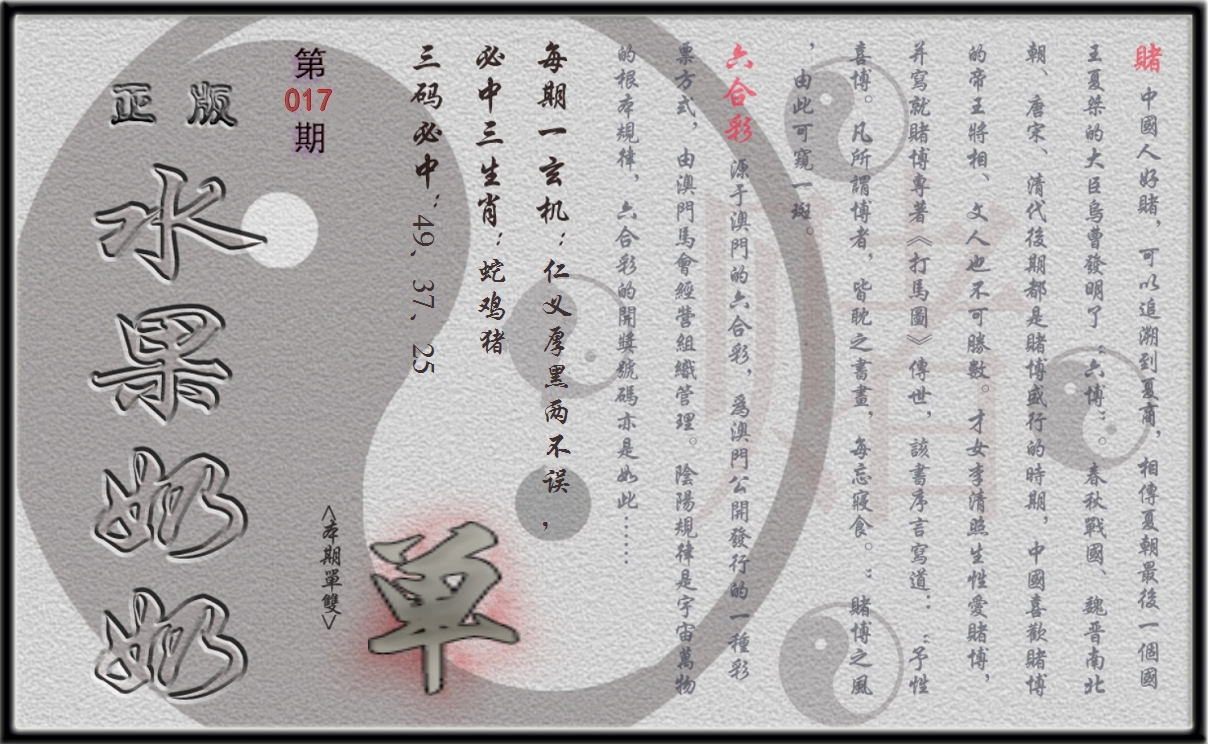 賭 中國人好賭，可以追溯到夏商，相傳夏朝最後一個國
王夏桀的大臣烏曹發明了“六博”。春秋戰國、魏晋南北
朝、唐宋、清代後期都是賭博盛行的時期，中國喜歡賭博
的帝王將相、文人也不可勝數。才女李清照生性愛賭博，
并寫就賭博專著《打馬圖》傳世，該書序言寫道：“予性
喜博。凡所謂博者，皆眈之書畫，每忘寢食。”賭博之風
，由此可窺一斑。
六合彩 源于澳門的六合彩，為澳門公開發行的一種彩
票方式，由澳門馬會經營組織管理。陰陽規律是宇宙萬物
的根本規律，六合彩的開獎號碼亦是如此……
每期一玄机：仁义厚黑两不误，
必中三生肖：蛇鸡猪
三码必中：49、37、25
單
<本期單雙>
第
017
期
正版
水果奶奶
赌